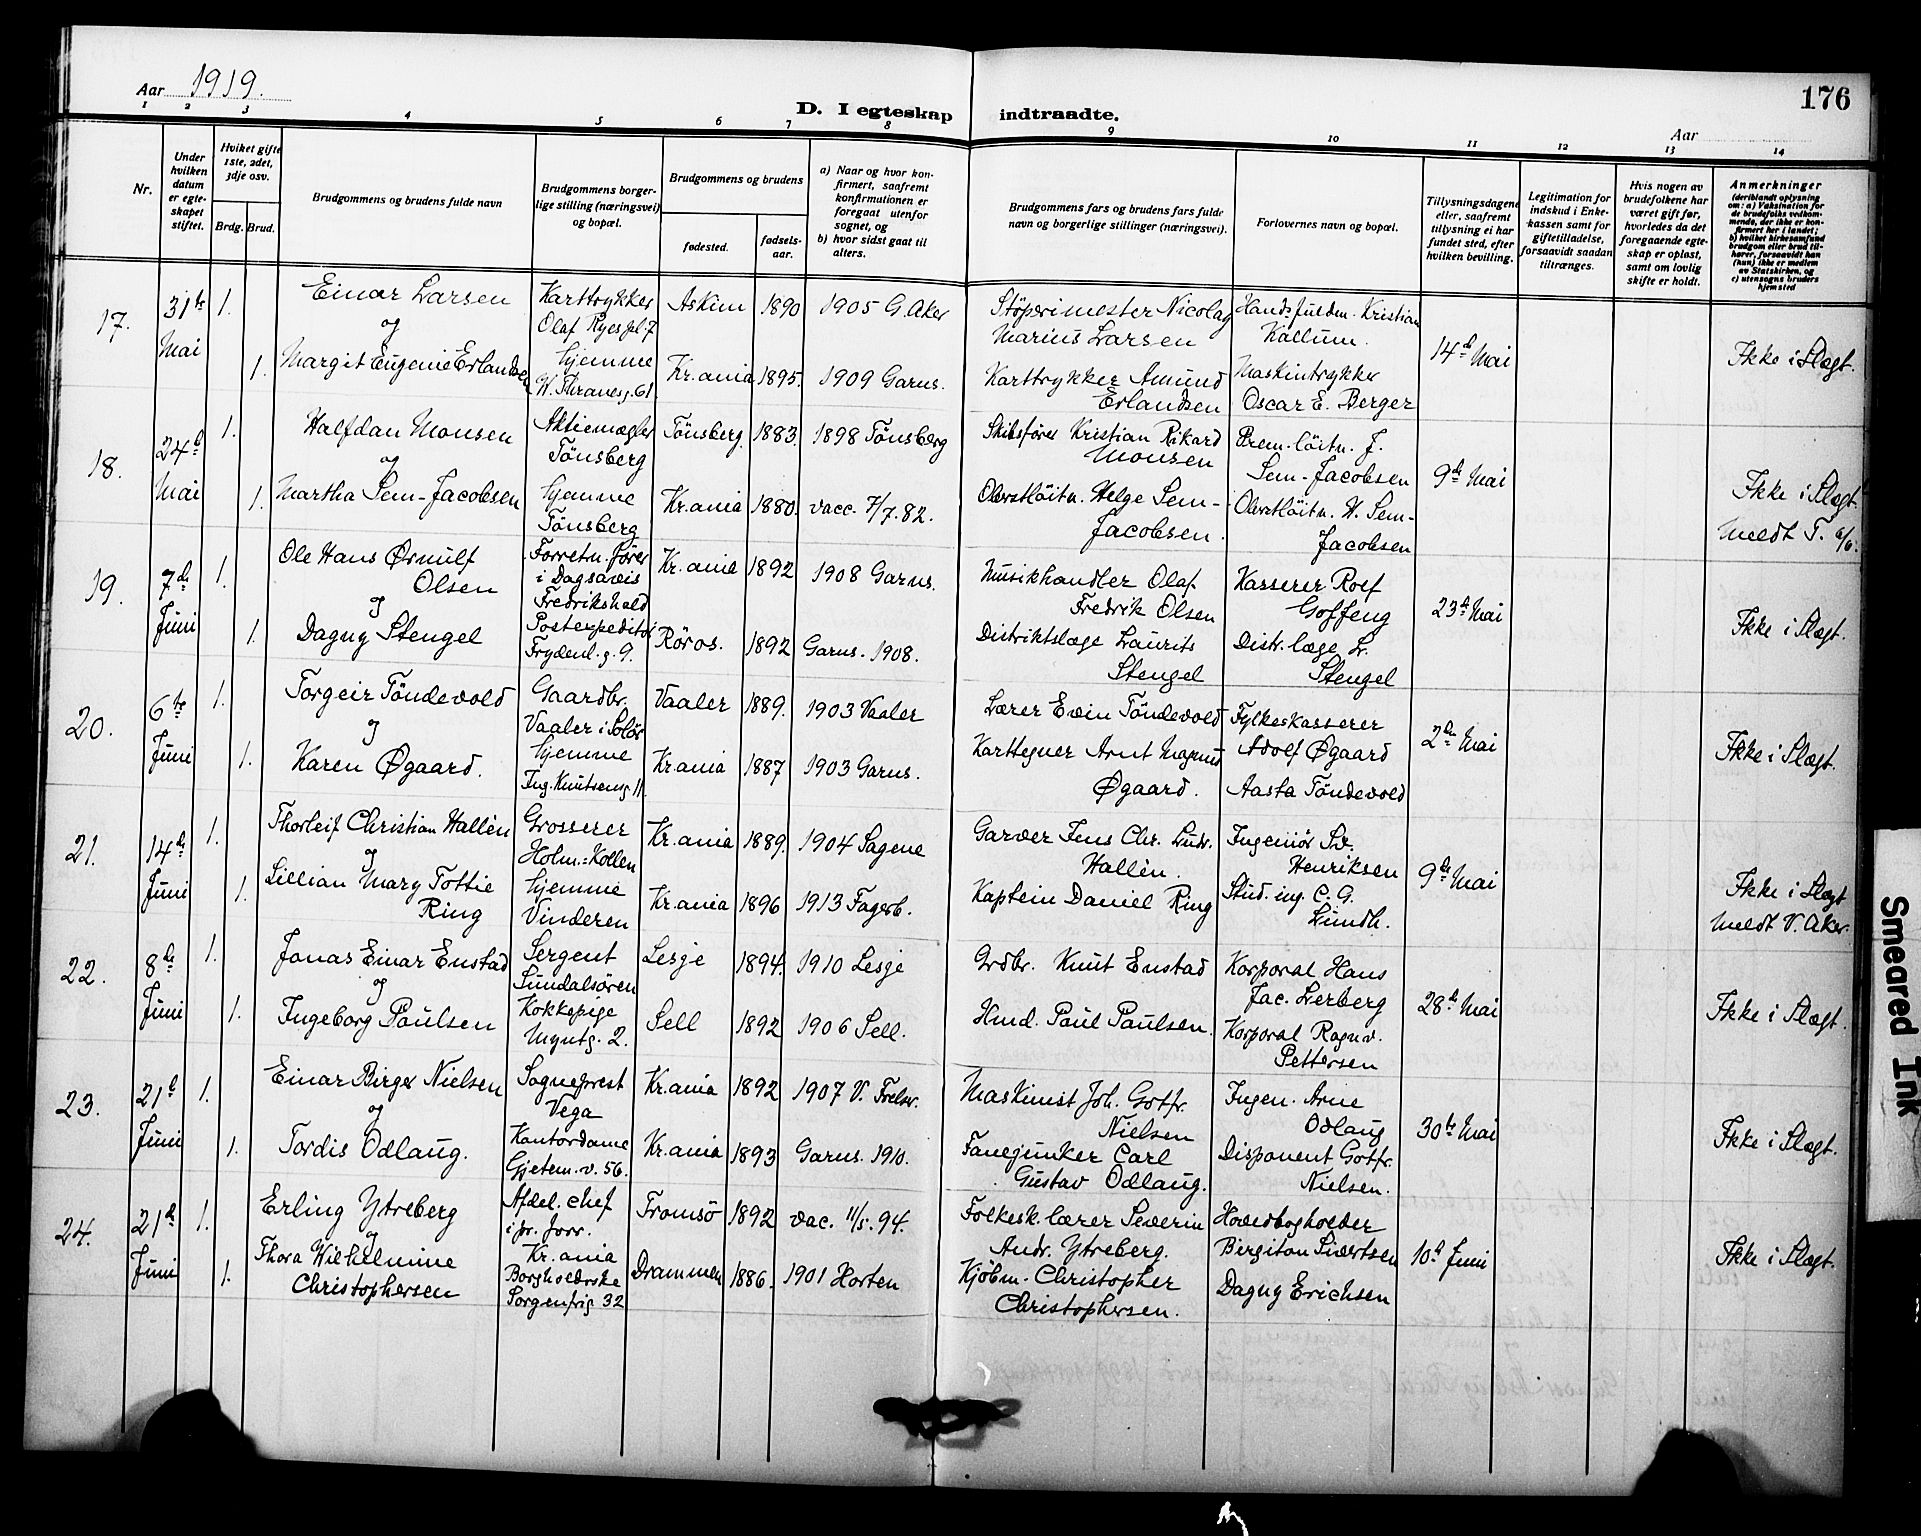 Aar 1919.
D. I egteskap indtraadte.
176
Aar
1 2 3 4 5 6 7 8 9 10 11 12 13 14
Nr.
Under hvilken datum er egteskapet stiftet.
Hviket gifte 1ste, 2det, 3dje osv.
Brdg. Brud.
Brudgommens og brudens fulde navn
Brudgommens borgerlige stilling (næringsvei) og bopæl.
Brudgommens og brudens
fødested.
fødselsaar.
a) Naar og hvor konfirmert, saafremt konfirmationen er foregaat utenfor sognet, og
b) hvor sidst gaat til alters.
Brudgommens fars og brudens fars fulde navn og borgerlige stillinger (næringsvei).
Forlovernes navn og bopæl.
Tillysningsdagene eller, saafremt tillysning ei har fundet sted, efter hvilken bevilling.
Legitimation for indskud i Enkekassen samt for giftetilladelse, forsaavidt saadan tiltrænges.
Hvis nogen av brudefolkene har været gift før, hvorledes da det foregaaende egteskap er opløst, samt om lovlig skifte er holdt.
Anmerkninger
(deriblandt oplysning om: a) Vaksination for de brudefolks vedkommende, der ikke er konfirmert her i landet; b) hvilket kirkesamfund brudgom eller brud tilhører, forsaavidt han (hun) ikke er medlem av Statskirken, og c) utensogns bruders hjemsted
17.
31te Mai
1.
Einar Larsen
og
Karttrykker
Olaf Ryes pl. 7
Askim
1890
1905 G. Aker
Støperimester Nicolay
Marius Larsen
Handsfuldm. Kristian
Kallum.
14de Mai
Ikke i Slægt.
1.
Margit Eugenie Erlandsen
hjemme
W. Thranesg. 61
Kr.ania
1895.
1909 Garns.
Karttrykker Amund
Erlandsen
Maskintrykker
Oscar E. Berger
18.
24de Mai
1.
Halfdan Monsen
og
Aktiemægler
Tönsberg
Tönsberg.
1883.
1898 Tönsberg
Skibsfører Kristian Rikard
Monsen
Prem. löitn. J.
Sem-Jacobsen
9de Mai
Ikke i Slægt.
Meldt T. 6/6.
1.
Martha Sem-Jacobsen
hjemme
Tönsberg
Kr.ania
1880.
vacc. 7/7. 82.
Oberstlöitn. Helge Sem-
Jacobsen.
Oberstlöitn. H. Sem-
Jacobsen
19.
7de Juni
1.
Ole Hans Ørnulf
Olsen
og
Forretn. fører
i Dagsavis
Fredrikshald
Kr.ania
1892
1908 Garns.
Musikhandler Olaf
Fredrik Olsen
Kasserer Rolf
Goffeng
23de Mai
Ikke i Slægt.
1.
Dagny Stengel
Postexpeditør
Frydenl. g. 9.
Röros.
1892
Garns. 1908.
Distriktslæge Laurits
Stengel
Distr. læge L.
Stengel
20.
6te Juni
1.
Torgeir Töndevold
og
Gaardbr.
Vaaler i Solör
Vaaler
1889.
1903 Vaaler
Lærer Evin Töndevold
Fylkeskasserer
Adolf Øgaard
2de Mai
Ikke i Slægt.
1.
Karen Øgaard.
hjemme
Ing. Knutseng. 11.
Kr.ania
1887
1903 Garns.
Karttegner Arnt Magnus
Øgaard.
Aasta Töndevold
21.
14de Juni
1.
Thorleif Christian Hallèn
og
Grosserer
Holm.-Kollen
Kr.ania
1889.
1904 Sagene
Garver Jens Chr. Ludv.
Hallèn.
Ingeniör Sv.
Henriksen
9de Mai
Ikke i Slægt
Meldt V. Aker.
1.
Lillian Mary Tottie
Ring
hjemme
Vinderen
Kr.ania
1896
1913 Fagerb.
Kaptein Daniel Ring
Stud. ing. C. G.
Lundh.
22.
8de Juni
1.
Jonas Einar Enstad
og
Sergent
Sundalsören
Lesje
1894.
1910 Lesje
Grdbr. Knut Enstad
Korporal Hans
Jac. Lerberg
28de Mai
Ikke i Slægt.
1.
Ingeborg Paulsen
Kokkepige
Myntg. 2.
Sell
1892
1906 Sell.
Hmd. Paul Paulsen.
Korporal Ragnv.
Pettersen
23.
21de Juni
1.
Einar Birger Nielsen
og
Sogneprest
Vega
Kr.ania
1892
1907 V. Frelser.
Maskinist Joh. Gotfr.
Nielsen
Ingen. Arne
Odlaug
30te Mai
Ikke i Slægt.
1.
Tordis Odlaug.
Kontordame
Gjetem. v. 56.
Kr.ania
1893
Garns. 1910.
Fanejunker Carl
Gustav Odlaug.
Disponent Gotfr.
Nielsen.
24.
21de Juni
1.
Erling Ytreberg
og
Afdel. chef
i pr. forr.
Kr.ania
Tromsö
1892
vac. 11/5. 94.
Folkesk. lærer Severin
Andr. Ytreberg.
Hovedbogholder
Birgiton Sivertsen
10de Juni
Ikke i Slægt.
1.
Thora Wilhelmine
Christophersen
Bogholderske
Sorgenfrig. 32
Drammen
1886.
1901 Horten
Kjöbm. Christopher
Christophersen.
Dagny Erichsen
Smeared Ink